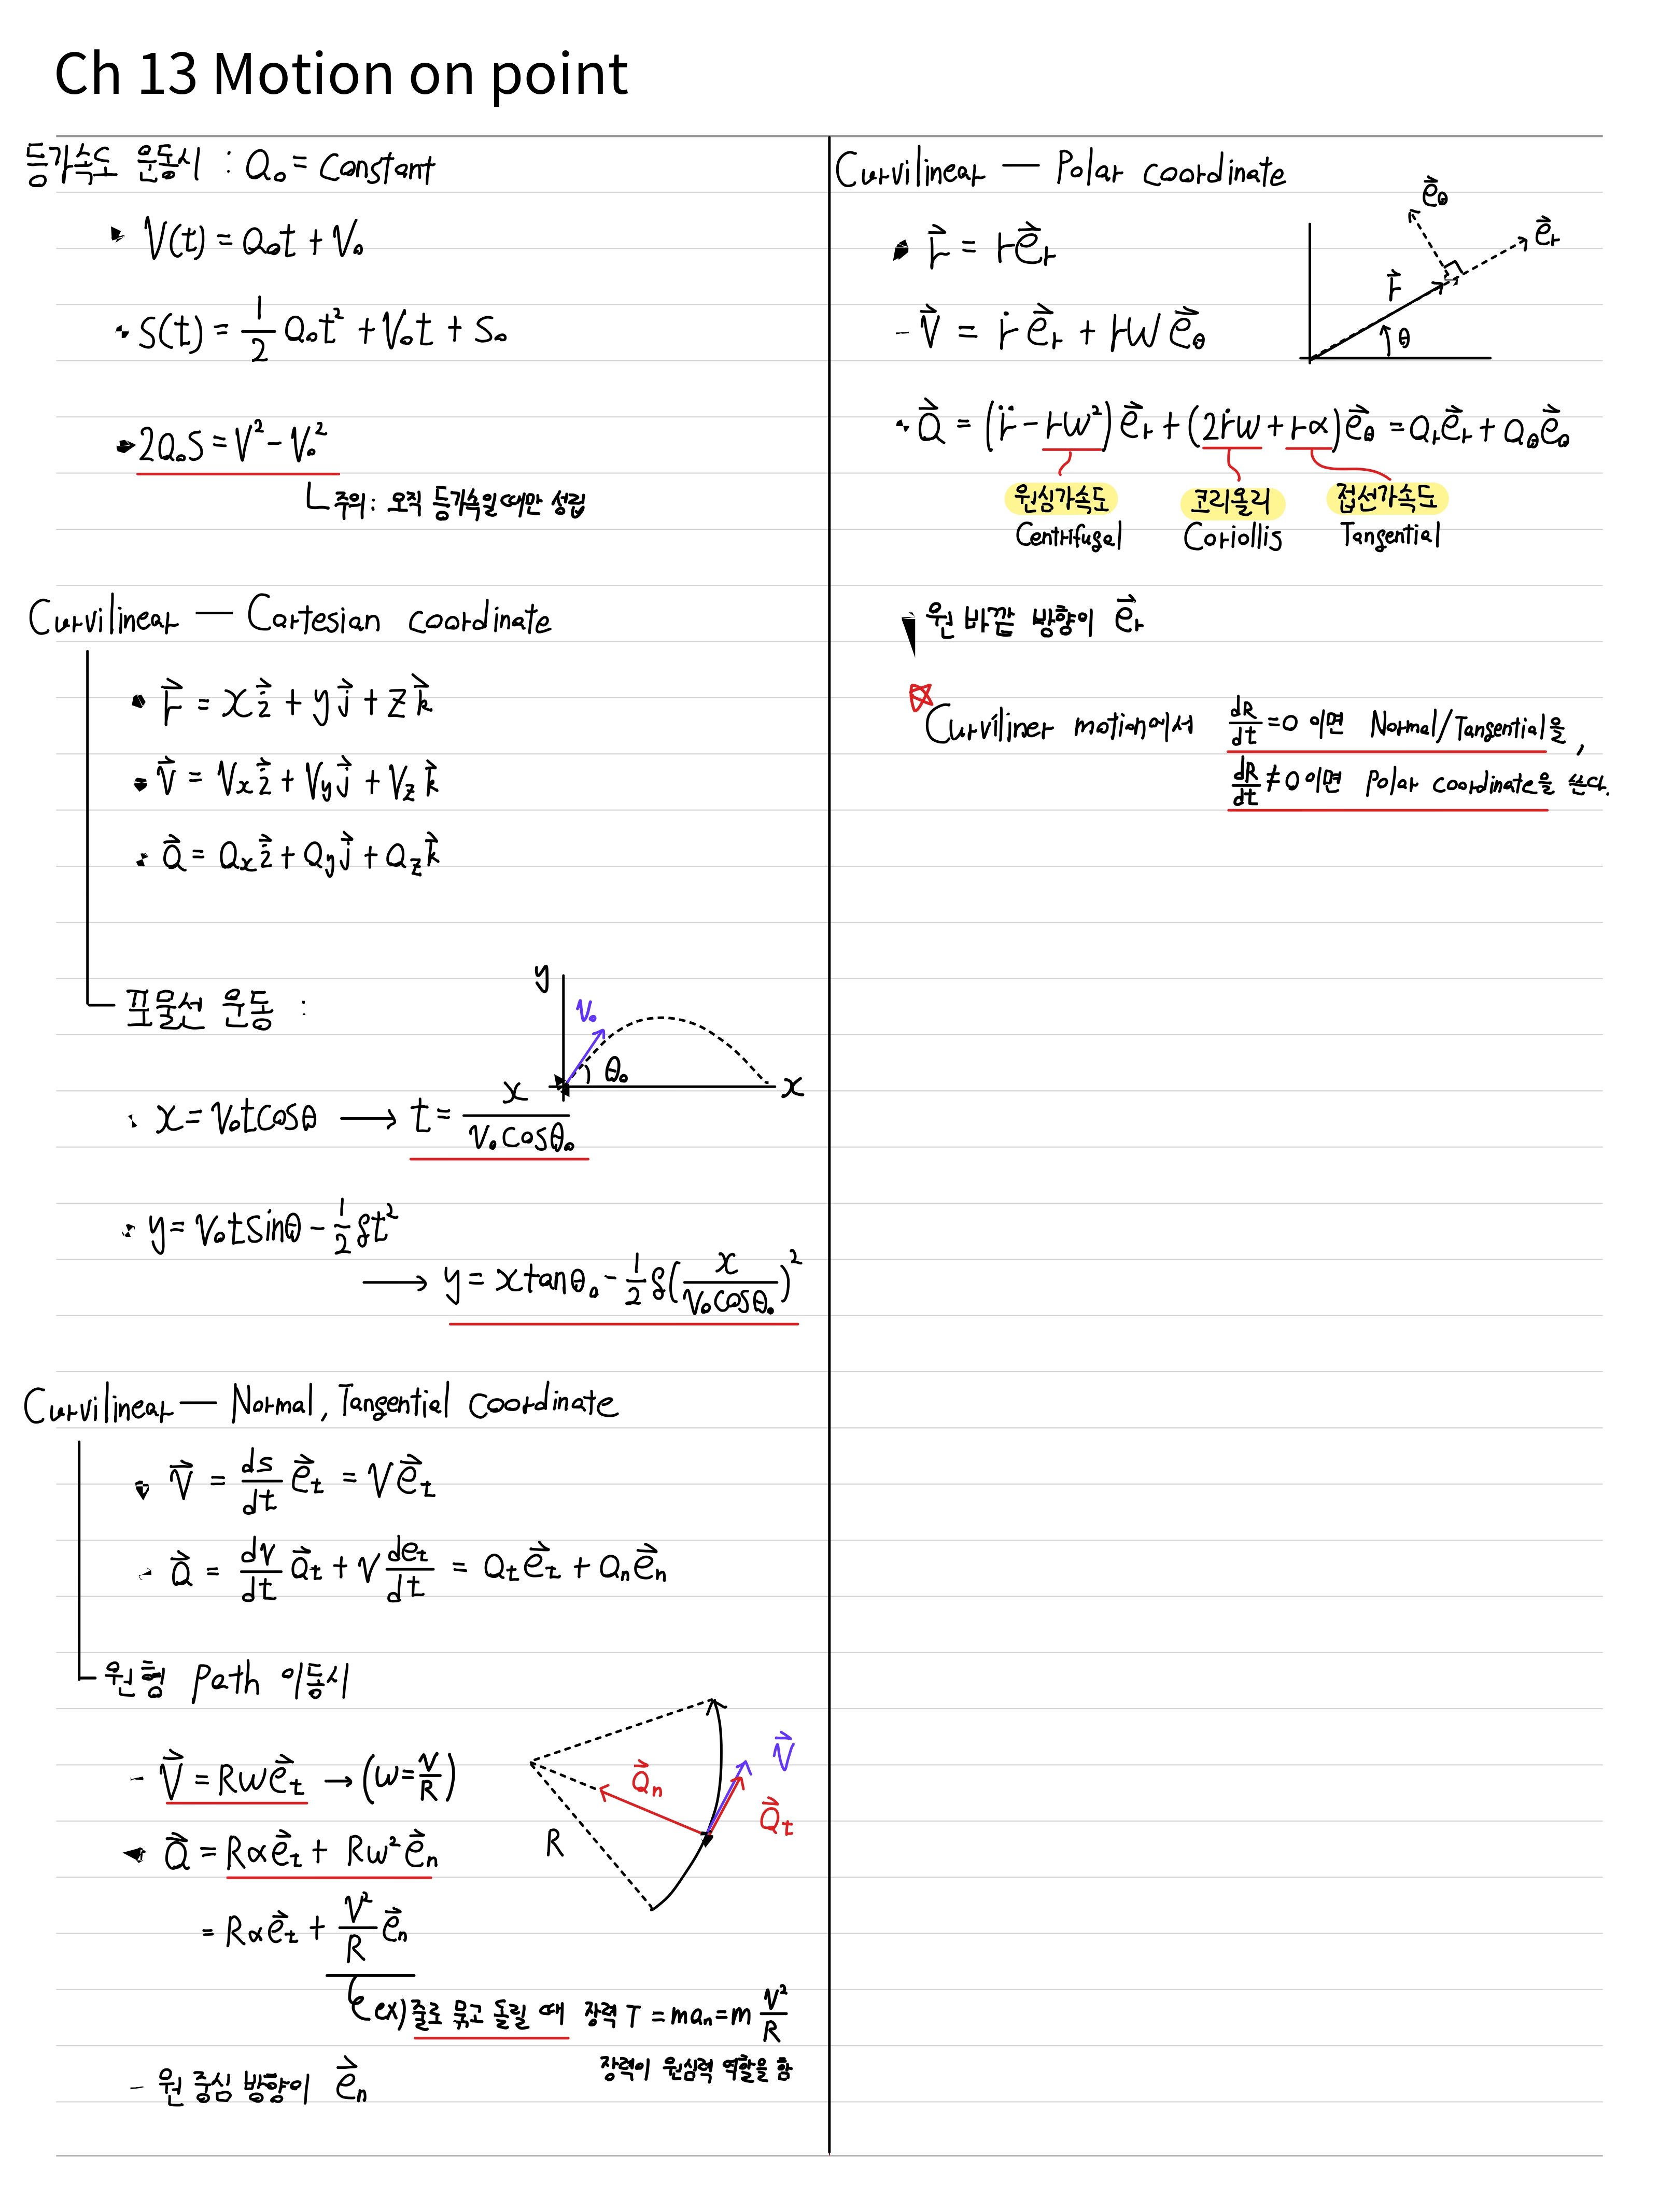 Ch 13 Motion on point
등가속도 운동시 : a₀ = constant
V(t) = a₀t + V₀
S(t) = 1/2 a₀t² + V₀t + S₀
2a₀S = V² - V₀²
주의: 오직 등가속일때만 성립
Curvilinear — Cartesian coordinate
r⃗ = xi⃗ + yj⃗ + zk⃗
V⃗ = Vxi⃗ + Vyj⃗ + Vzk⃗
a⃗ = axi⃗ + ayj⃗ + azk⃗
포물선 운동 :
y
V₀
θ₀
x
x = V₀tcosθ → t = x/(V₀cosθ₀)
y = V₀tsinθ - 1/2 gt²
→ y = xtanθ₀ - 1/2 g(x/(V₀cosθ₀))²
Curvilinear — Normal, Tangential coordinate
V⃗ = ds/dt e⃗t = Ve⃗t
a⃗ = dV/dt a⃗t + V det/dt = at e⃗t + an e⃗n
원형 path 이동시
V⃗ = Rωe⃗t → (ω = V/R)
a⃗ = Rαe⃗t + Rω²e⃗n
= Rαe⃗t + V²/R e⃗n
a⃗n
V⃗
a⃗t
R
ex) 줄로 묶고 돌릴 때 장력 T = man = m V²/R
장력이 원심력 역할을 함
- 원 중심 방향이 e⃗n
Curvilinear — Polar coordinate
r⃗ = re⃗r
- V⃗ = ṙe⃗r + rωe⃗θ
e⃗θ
e⃗r
r⃗
θ
a⃗ = (r̈ - rω²)e⃗r + (2ṙω + rα)e⃗θ = ar e⃗r + aθ e⃗θ
원심가속도 코리올리 접선가속도
Centrifugal Coriollis Tangential
원 바깥 방향이 e⃗r
Curviliner motion에서 dR/dt = 0 이면 Normal/Tangential을,
dR/dt ≠ 0 이면 Polar coordinate을 쓴다.